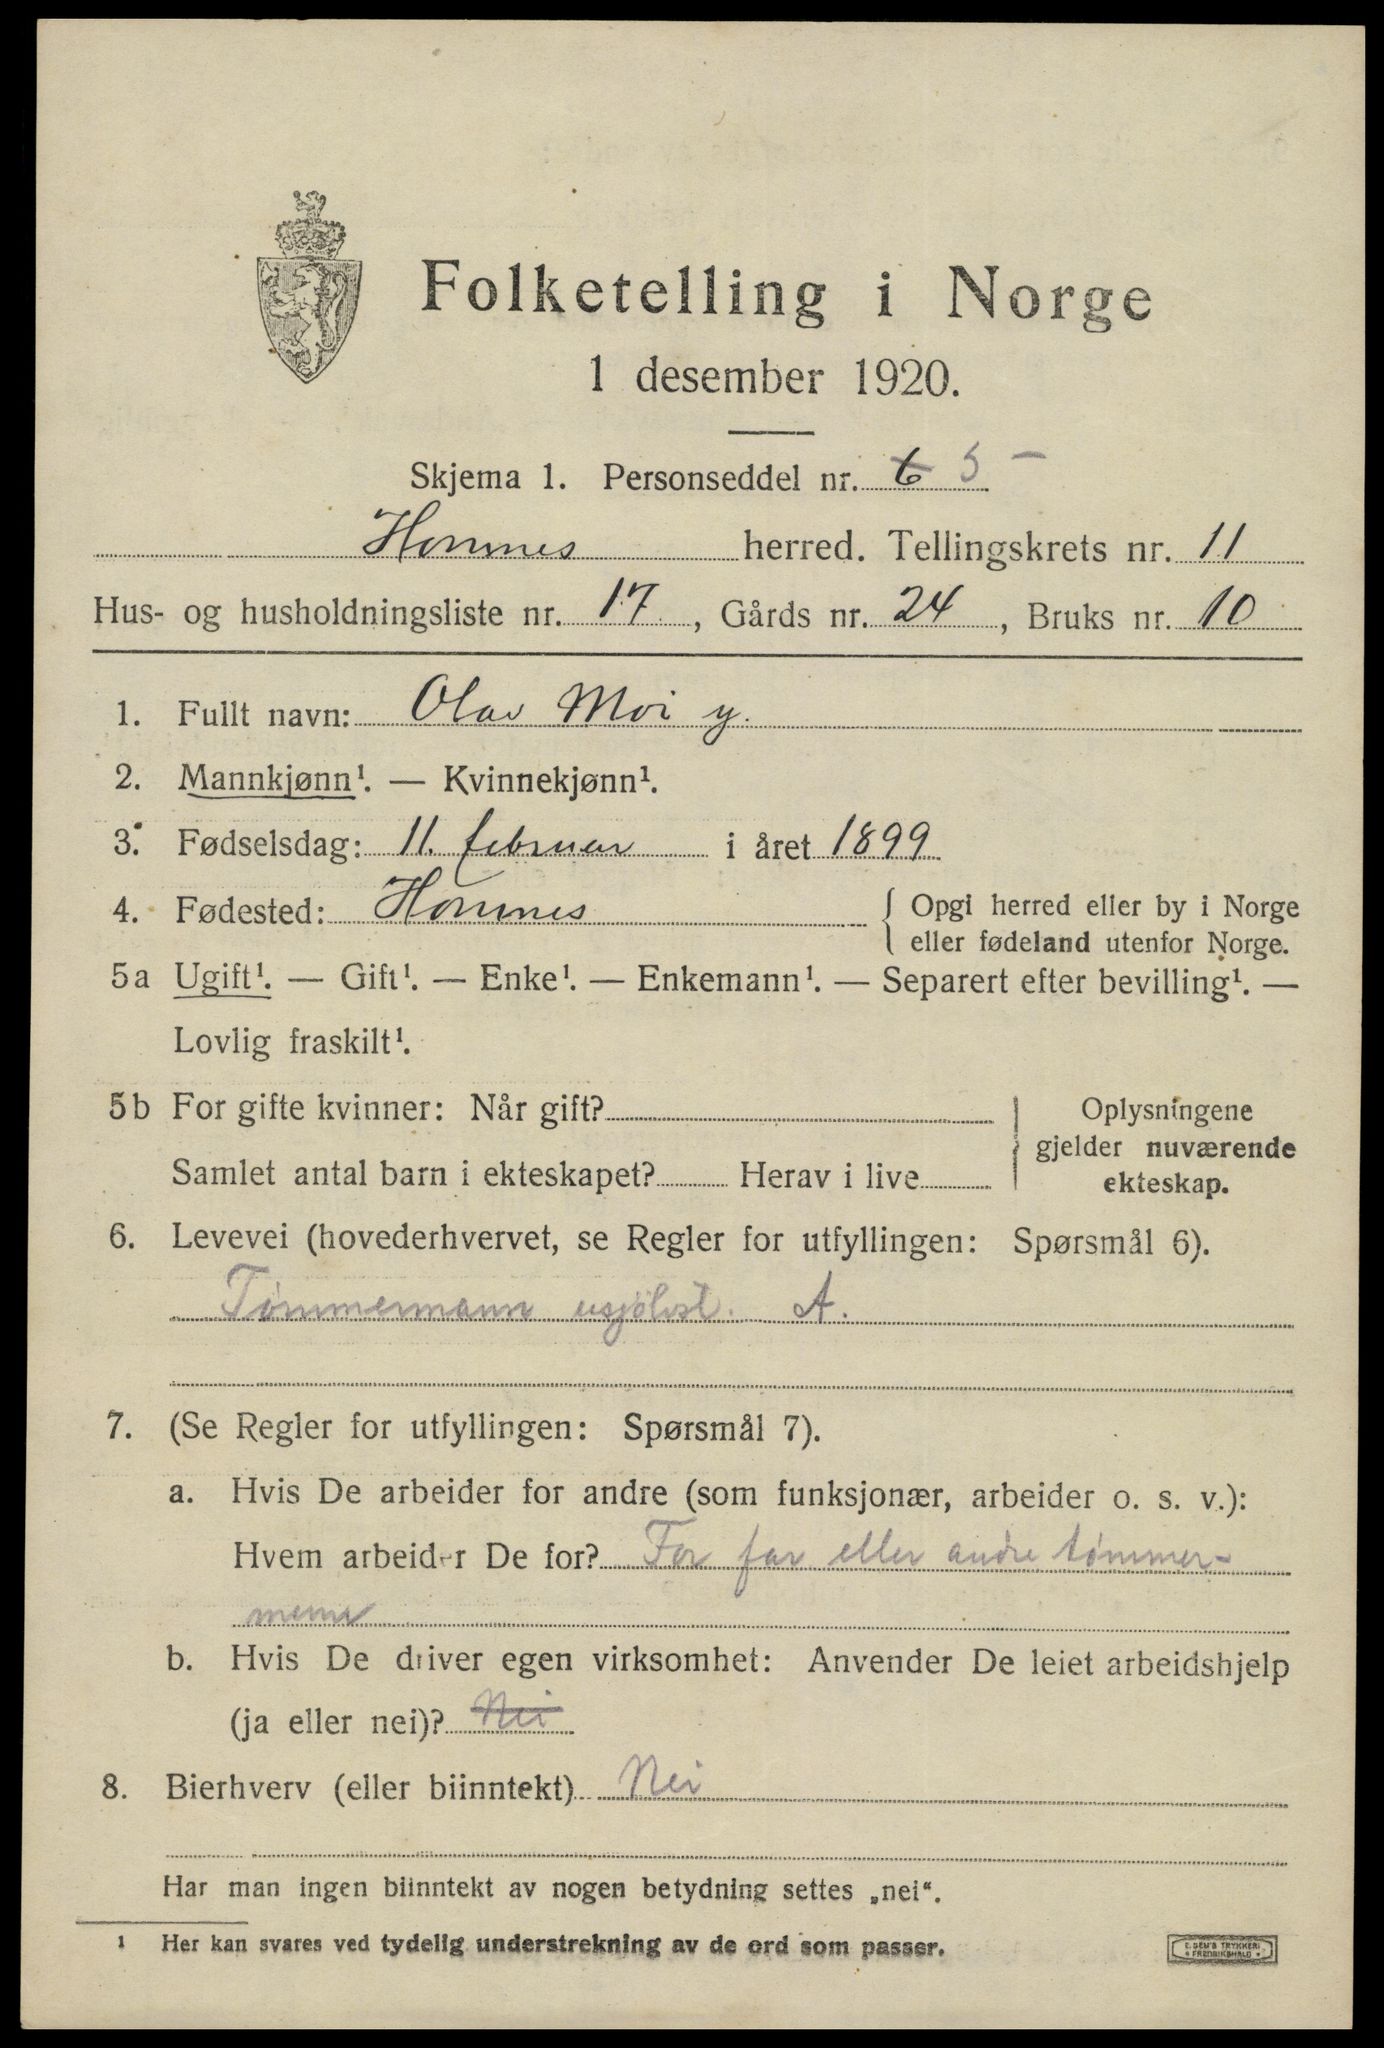 Folketelling i Norge
1 desember 1920.
Skjema 1. Personseddel nr. 6 5 —
Hornnes herred. Tellingskrets nr. 11
Hus- og husholdningsliste nr. 17, Gårds nr. 24, Bruks nr. 10
1. Fullt navn: Olav Moi y.
2. Mannkjønn¹. — Kvinnekjønn¹.
3. Fødselsdag: 11. februar i året 1899
4. Fødested: Hornnes { Opgi herred eller by i Norge
eller fødeland utenfor Norge.
5a Ugift¹. — Gift¹. — Enke¹. — Enkemann¹. — Separert efter bevilling¹. —
Lovlig fraskilt¹.
5b For gifte kvinner: Når gift?
Samlet antal barn i ekteskapet? Herav i live
Oplysningene
gjelder nuværende
ekteskap.
6. Levevei (hovederhvervet, se Regler for utfyllingen: Spørsmål 6).
Tømmermann usjølvst. A.
7. (Se Regler for utfyllingen: Spørsmål 7).
a. Hvis De arbeider for andre (som funksjonær, arbeider o. s. v.):
Hvem arbeider De for? For far eller andre tømmer-
menn
b. Hvis De driver egen virksomhet: Anvender De leiet arbeidshjelp
(ja eller nei)? Nei
8. Bierhverv (eller biinntekt) Nei
Har man ingen biinntekt av nogen betydning settes „nei“.
1 Her kan svares ved tydelig understrekning av de ord som passer.
E. SEM'S TRYKKERI
FREDRIKSHALD